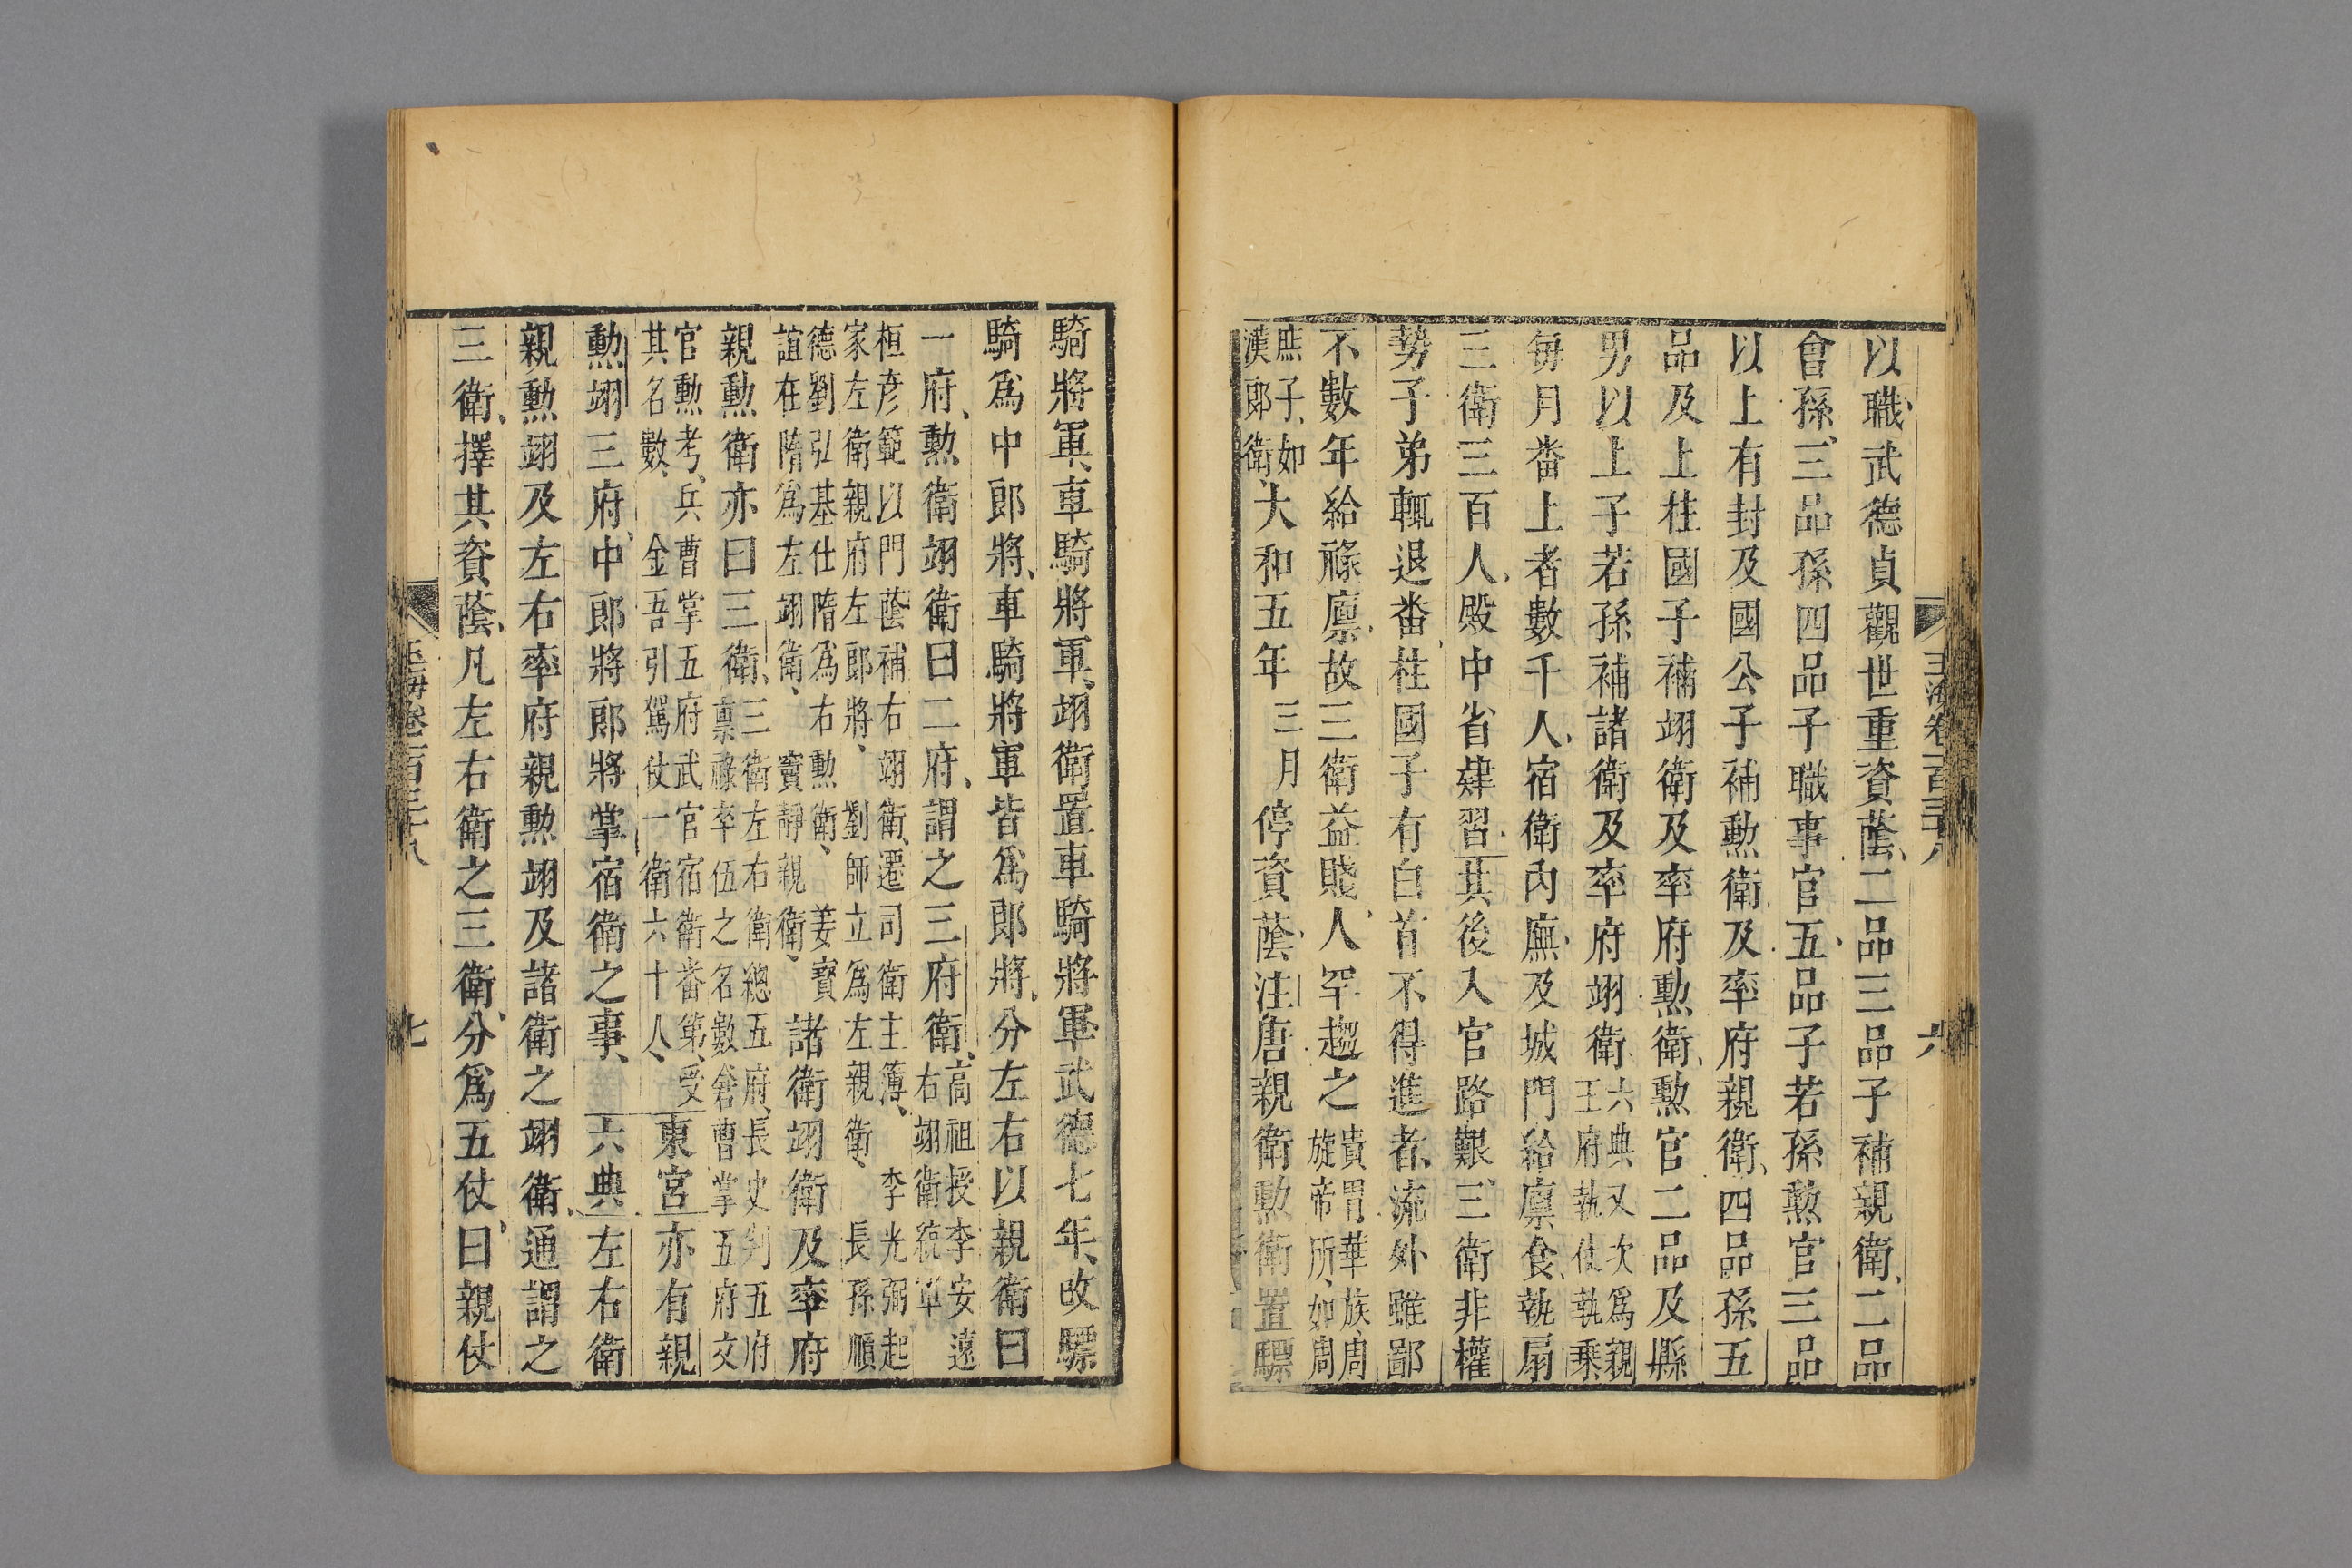 玉海卷一百三十八
六
以職武德貞觀世重資蔭二品三品子補親衛二品
會孫三品孫四品子職事官五品子若孫勲官三品
以上有封及國公子補勲衛及率府親衛四品孫五
品及上柱國子補翊衛及率府勲衛勲官二品及縣
男以上子若孫補諸衛及率府翊衛六典又次爲親
王府執仗執乗
每月番上者數千人宿衛內廡及城門給廩食執扇
三衛三百人殿中省肄習其後入官路艱三衛非權
勢子弟輒退番柱國子有白首不得進者流外雖鄙
不數年給祿廩故三衛益賤人罕趨之貴胄華族周
旋帝所如周
庶子如
漢郎衛大和五年三月停資蔭注唐親衛勲衛置驃
騎將軍車騎將軍翊衛置車騎將軍武德七年改驃
騎爲中郎將車騎將軍皆爲郎將分左右以親衛曰
一府勲衛翊衛曰二府謂之三府衛高祖授李安遠
右翊衛統軍
桓彦範以門蔭補右翊衛遷司衛主簿李光弼起
家左衛親府左郎將劉師立爲左親衛長孫順
德劉弘基仕隋爲右勲衛姜寶
誼在隋爲左翊衛竇靜親衛諸衛翊衛及率府
親勲衛亦曰三衛三衛左右衛總五府長史判五府
稟祿卒伍之名數倉曹掌五府文
官勲考兵曹掌五府武官宿衛番第受
其名數金吾引駕仗一衛六十人東宮亦有親
勲翊三府中郎將郎將掌宿衛之事六典左右衛
親勲翊及左右率府親勲翊及諸衛之翊衛通謂之
三衛擇其資蔭凡左右衛之三衛分爲五仗曰親仗
玉海卷一百三十八
七